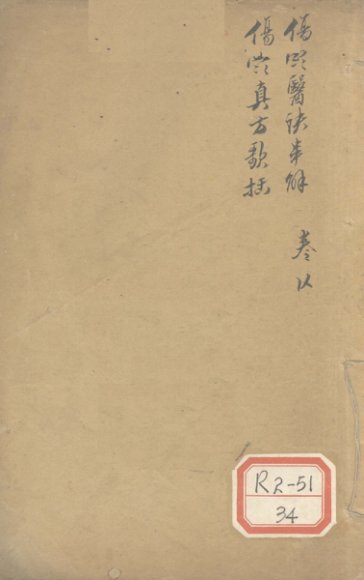 傷寒醫訣串解 卷六
傷寒真方歌括
R2-51
34